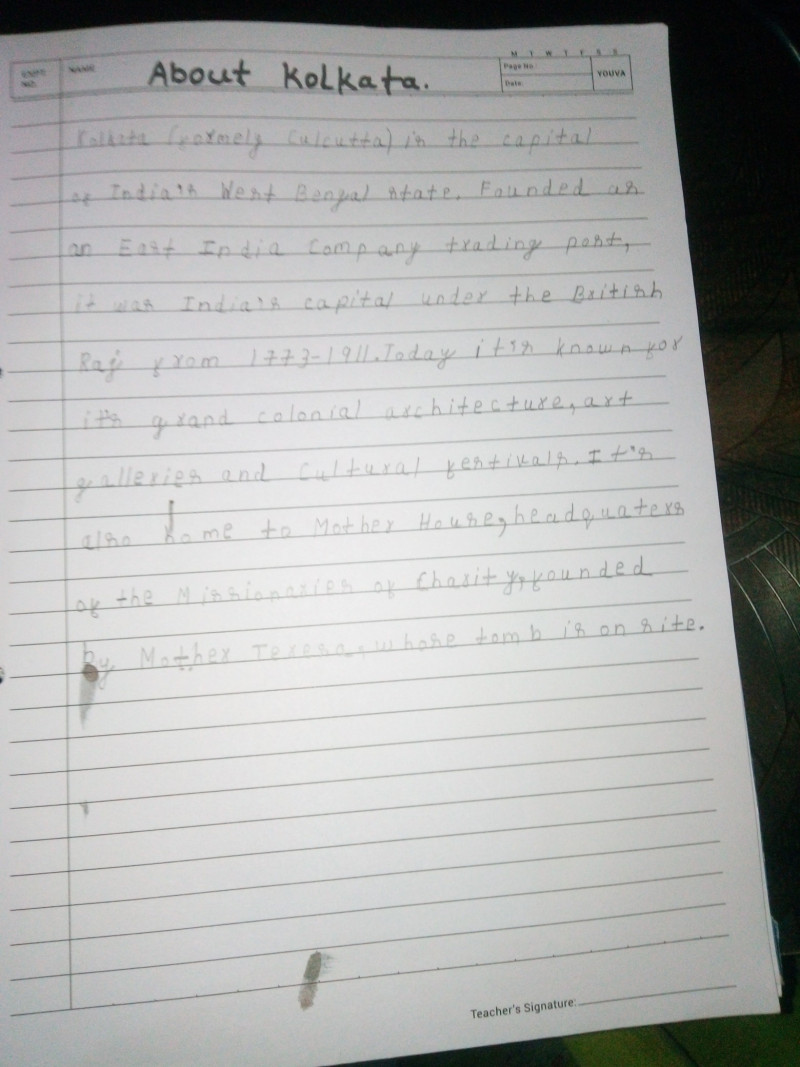 About Kolkata.
NAME
M T W T F S S
Page No.
Date:
YOUVA
Kolkata (formely Culcutta) is the capital
of India's West Bengal state. Founded as
an East India Company trading post,
it was India's capital under the British
Raj from 1773-1911. Today it's known for
it's grand colonial architecture, art
galleries and Cultural festivals. It's
also home to Mother House, headquaters
of the Missionaries of Charity, founded
by Mother Teresa, whose tomb is on site.
Teacher's Signature: